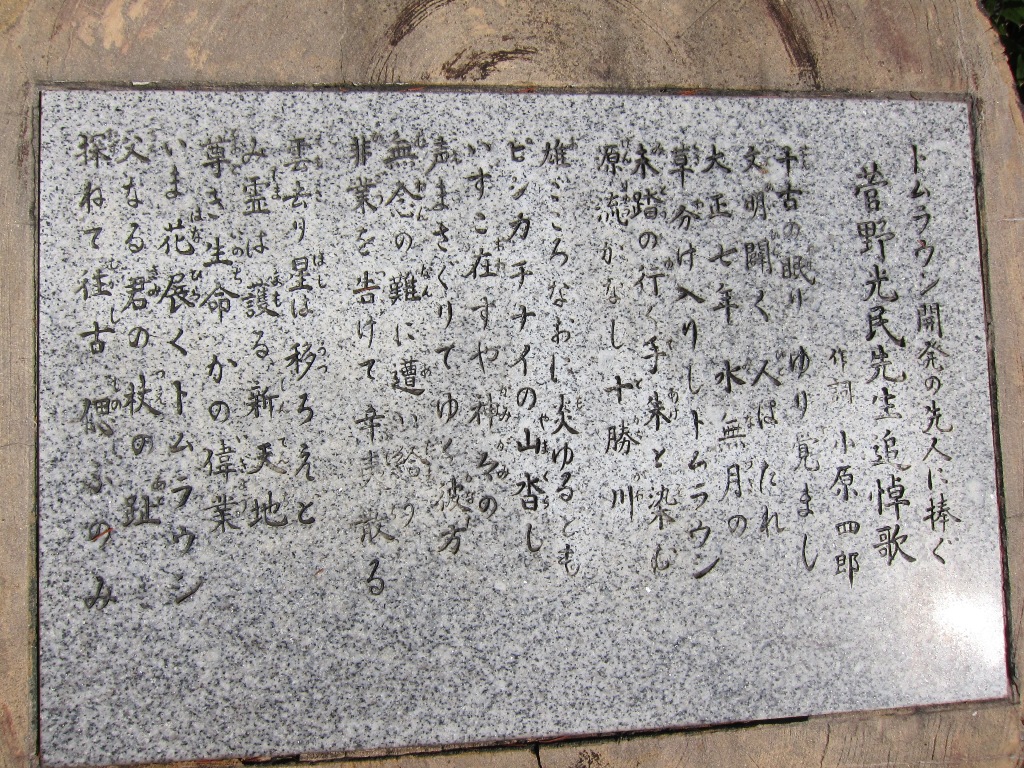 トムラウシ開発の先人に捧ぐ
菅野光民先生追悼歌
作詞 小原四郎
千古の眠り ゆり覚まし
文明闢く 人はたれ
大正七年 水無月の
草分け入りしトムラウシ
未踏の行く手 朱と染む
原流かなし 十勝川
雄ごころなおし炎ゆるとも
ピシカチナイの山沓し
いずこ在すや 神々の
声まさぐりてゆく彼方
無念の難に遭い給う
非業を告げて 幸 散る
雲去り星は 移ろえと
み霊は護る 新天地
尊き生命 かの偉業
いま花展く トムラウシ
父なる君の 杖の趾
探ねて往古 偲ぶのみ